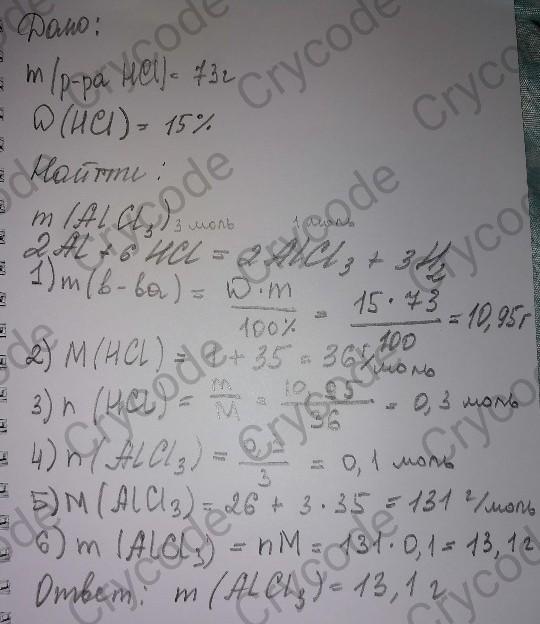 Дано:
m(р-ра HCl) = 73г
W(HCl) = 15%
Найти:
m(AlCl3)
3 моль 1 моль
2Al + 6HCl = 2AlCl3 + 3H2
1) m(в-ва) = W·m / 100% = 15·73 / 100 = 10,95г
2) M(HCl) = 1 + 35 = 36 г/моль
3) n(HCl) = m / M = 10,95 / 36 = 0,3 моль
4) n(AlCl3) = 0,3 / 3 = 0,1 моль
5) M(AlCl3) = 26 + 3·35 = 131 г/моль
6) m(AlCl3) = nM = 131·0,1 = 13,1г
Ответ: m(AlCl3) = 13,1 г
Crycode
Crycode
Crycode
Crycode
Crycode
Crycode
Crycode
Crycode
Crycode
Crycode